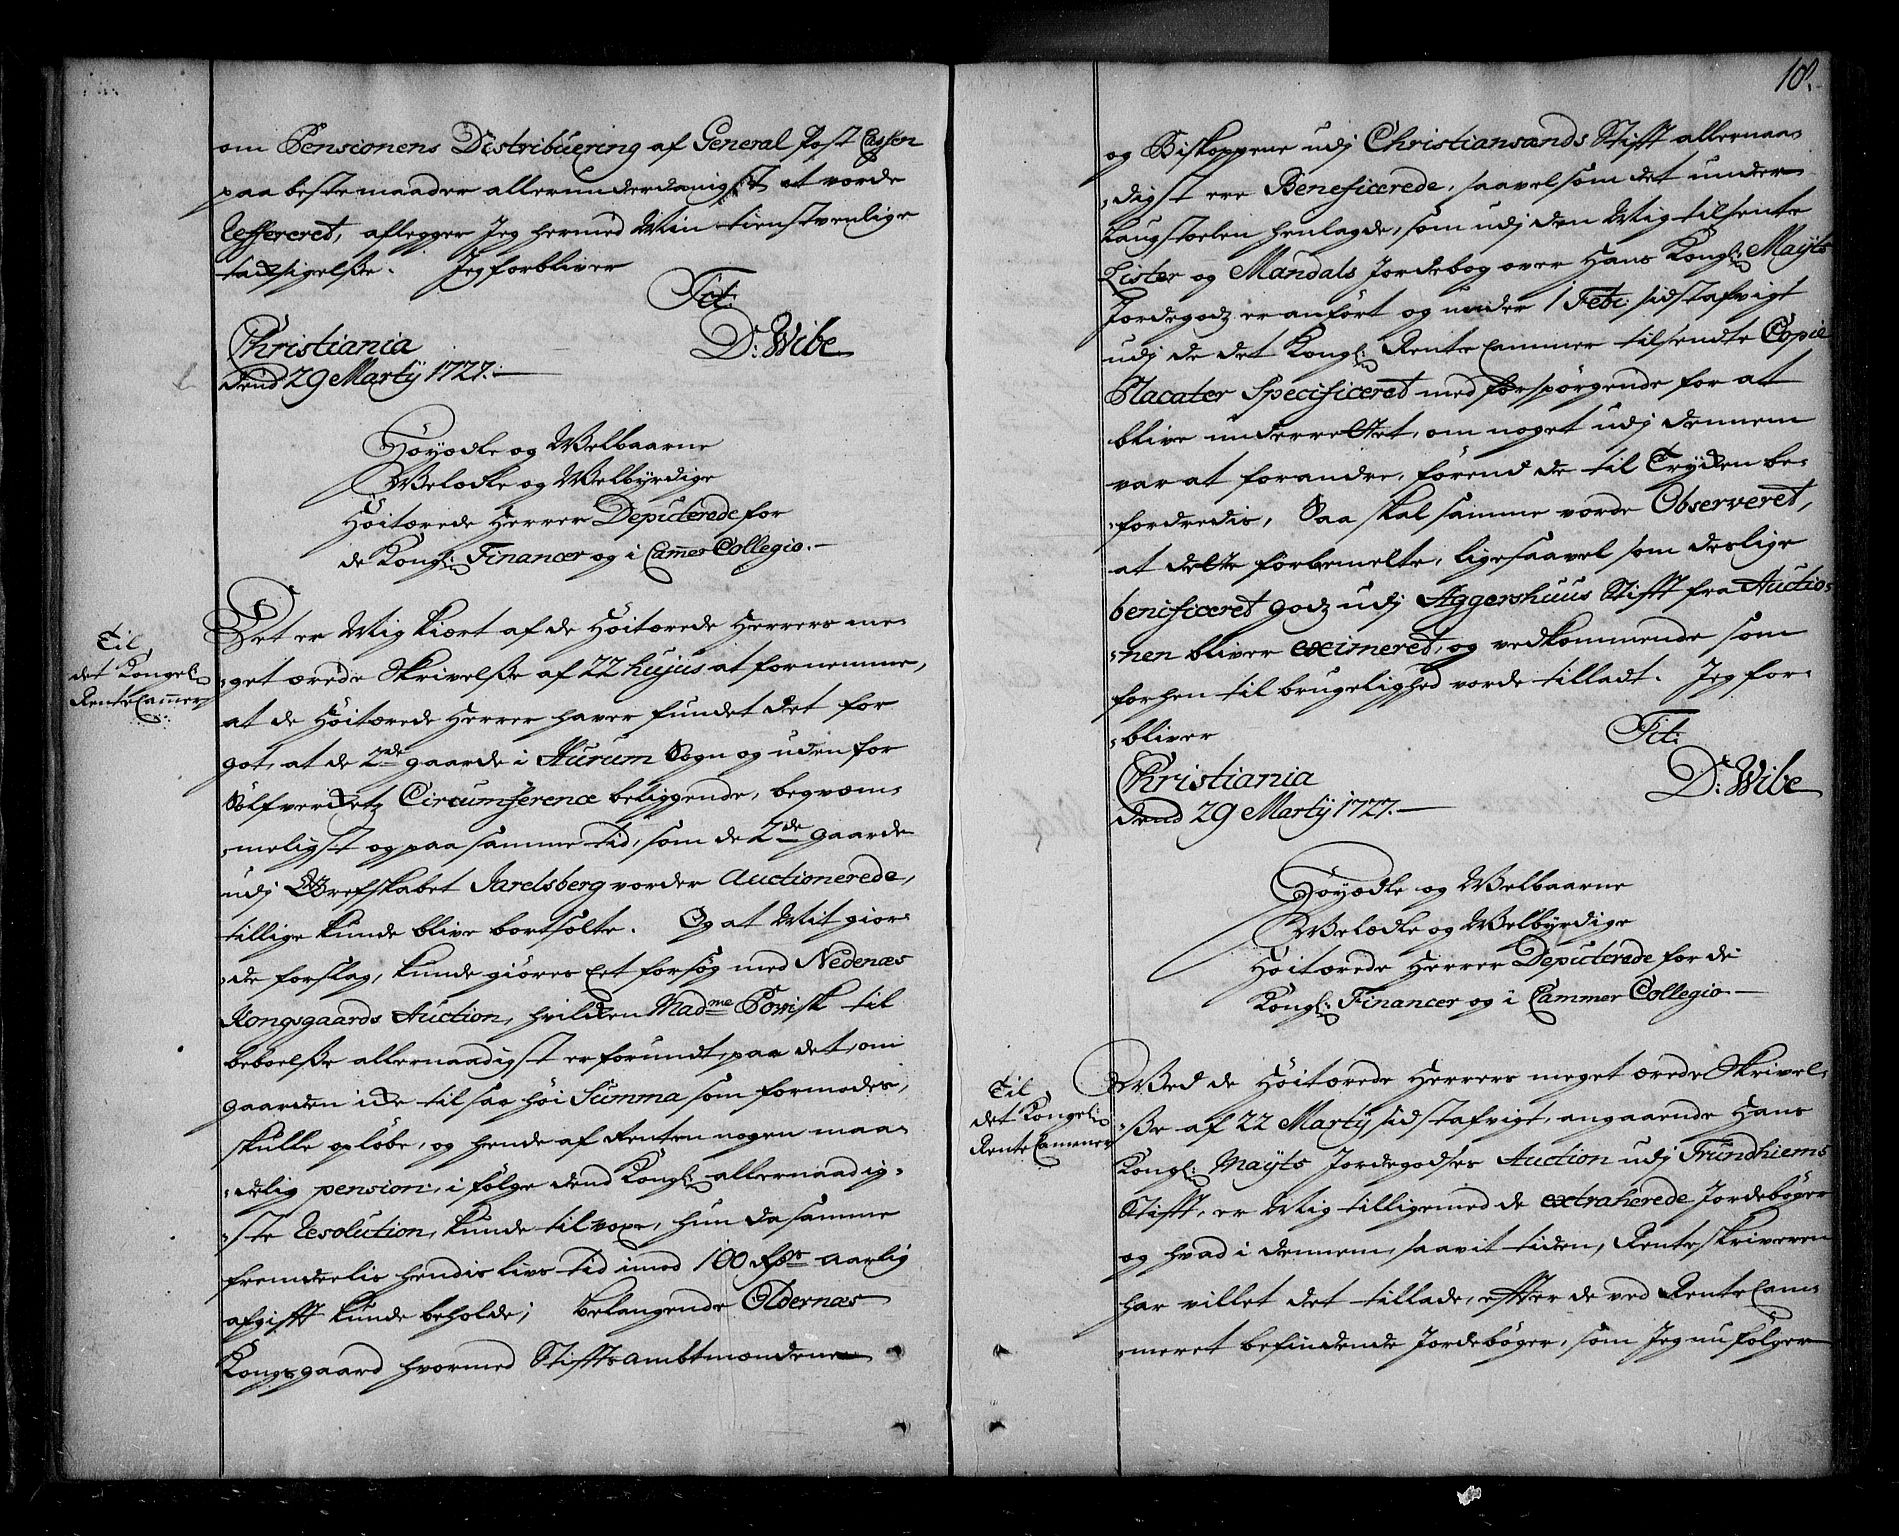 om Pensionens Distribuering af General Post Cassen
paa beste maader allerunderdanigst at vorde
Refereret, aflegger Jeg hermed Min tienstvenlige
tacksigelße. Jeg forbliver
Tit:
Christiania D: Wibe
dend 29 Martij 1727.
Høyædle og Welbaarne
Welædle og Welbyrdige
Høitærede Herrer Deputerede for
de Kongl: Financer og i Cammer Collegio.
Til
det Kongel:
Rente Cammer
Det er Mig kiert af de Høitærede Herrers me-
get ærede Skrivelße af 22 hujus at fornemme,
at de Høitærede Herrer haver fundet det for
got, at de 2de gaarde i Aurum Sogn og uden for
Sølfverckets Circumference beliggende, beqvem-
meligst og paa samme tid, som de 2de gaarde
udj Grefskabet Jarelsberg vorder Auctionerede,
tillige kunde blive bortsolte. Og at Mit gior-
de forslag, kunde giøres Eet forsøg med Nedenæs
Kongsgaards Auction, hvilken Madme Powisk til
beboelße allernaadigst er forundt, paa det, om
gaarden icke til saa høi Summa som formodes,
skulle opløbe, og hende af Renten nogen maa-
delig pension, i følge dend Kongl: allernaadig-
ste Resolution, kunde tilvoxe, hun da samme
fremdeelis hendis livs tid imod 100 Rdr aarlig
afgifft kunde beholde; belangende Oldernæs
Kongsgaard hvormed Stifftsambtmændene
18.
og Biskoppene udj Christiansands Stifft allernaa-
digst ere Beneficerede, saavelsom det under
Laugstoelen henlagde, som udj den Mig tilsente
Lister og Mandals Jordebog over Hans Kongl: Mayts
Jordegodz er anført og under 1 Febr: sidstafvigt
udj de det Kongl: Rente Cammer tilsendte Copie
Placater Specificeret med forspørgende for at
blive underrettet, om noget udj dennem
var at forandre, førend de til Trycken be-
fordredis, Saa skal samme vorde Observeret,
at dette forbemelte, ligesaavel som deslige
beneficeret godz udj Aggershuus Stifft fra Auctio-
nen bliver eximeret, og vedkommende som
forhen til brugelighed vorde tilladt. Jeg for-
bliver Tit:
Christiania D: Wibe
dend 29 Martij 1727.
Høyædle og Welbaarne
Welædle og Welbyrdige
Høitærede Herrer Deputerede for de
Kongl: Financer og i Cammer Collegio
Til
det Kongel:
Rente Cammer
Med de Høitærede Herrers meget ærede Skrivel-
ße af 22 Martij sidstafvigt, angaaende Hans
Kongl: Mayts Jordegodses Auction udj Trundhiems
Stifft, er Mig tilligemed de extraherede Jordebøger
og hvad i dennem, saavit tiden, Renteskriveren
har villet det tillade, efter de ved Rente Cam-
meret befindende Jordebøger, som Jeg nu følger